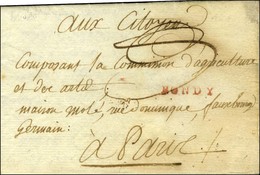 aux Citoyens
Composant la Commission d'agriculture
et des arts
BONDY
maison molé, rue dominique, fauxbourg
Germain :
à Paris